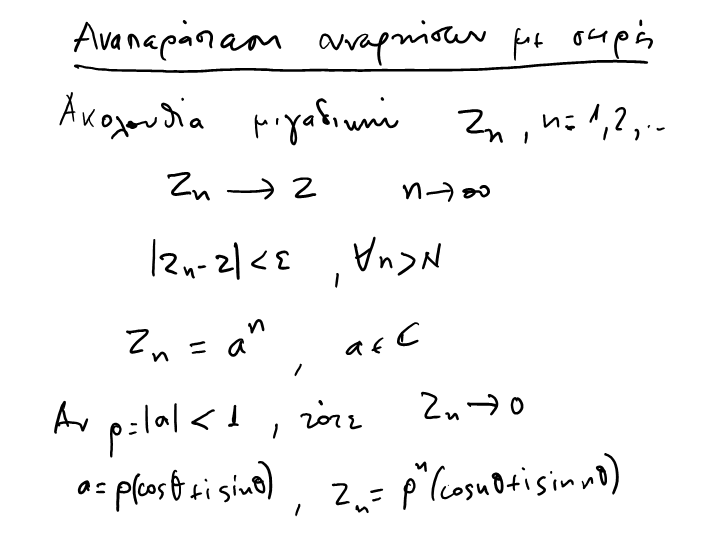 Αναπαράσταση συναρτήσεων με σειρές
Ακολουθία μιγαδικών Zn , n=1,2,...
Zn → z n→∞
|Zn-z|<ε , ∀n>N
Zn = aⁿ , a ∈ C
Αν ρ=|a|<1 , τότε Zn→0
a=ρ(cosθ+i sinθ) , Zn= ρⁿ(cosnθ+i sin nθ)